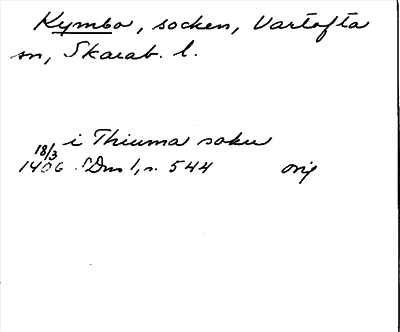 Kymbo, socken, Vartofta
sn, Skarab. l.
i Thiuma sokn
18/3
1406 SDns 1, s. 544 orig